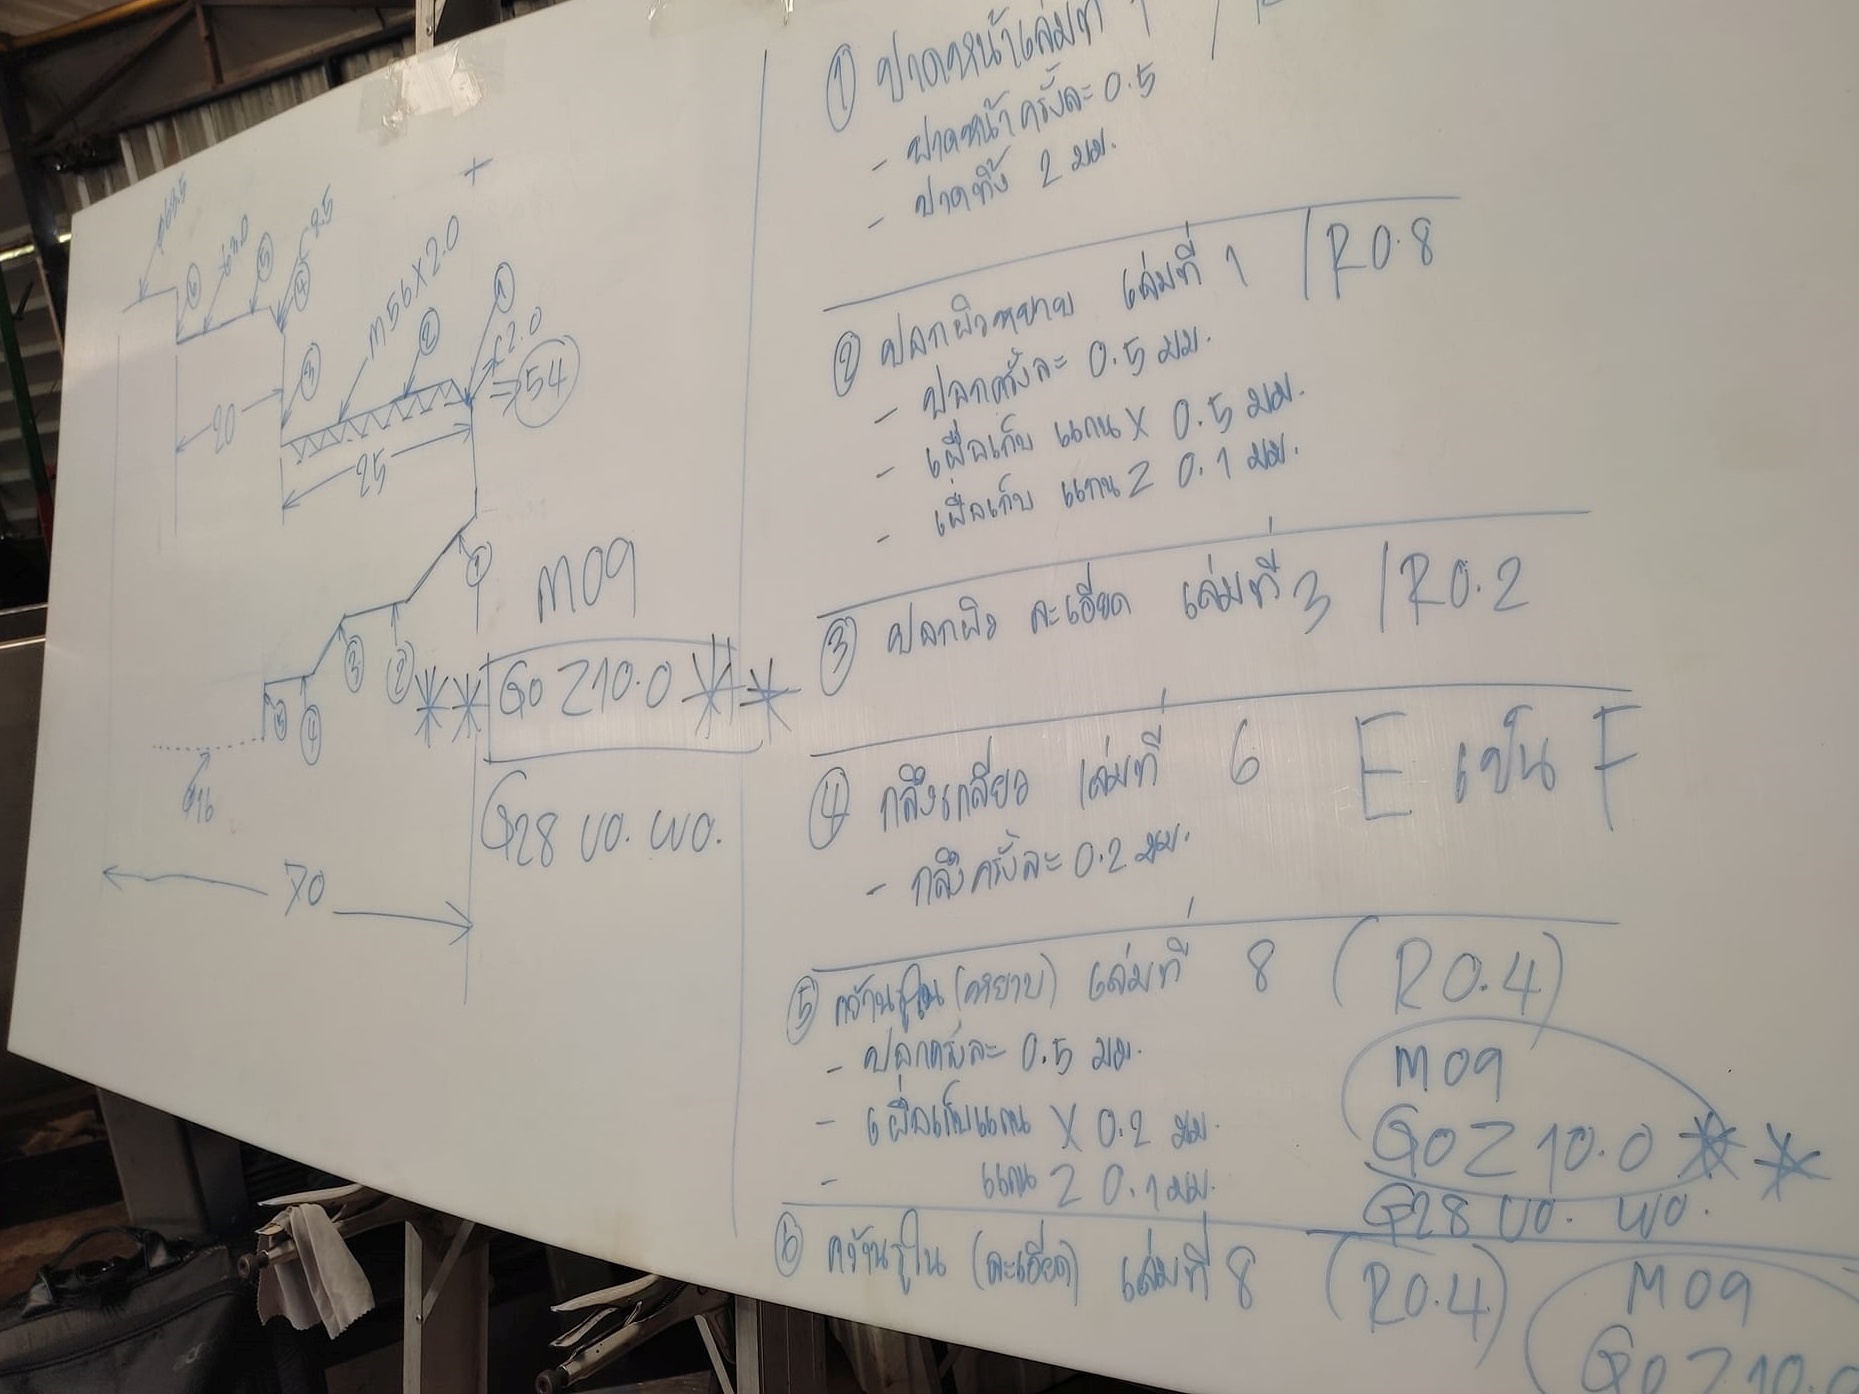 ① ปาดหน้าเล่มที่ 1 / R
- ปาดหน้าครั้งละ 0.5
- ปาดทิ้ง 2 มม.
② ปลอกผิวหยาบ เล่มที่ 1 / R0.8
- ปลอกครั้งละ 0.5 มม.
- เผื่อเก็บ แกน X 0.5 มม.
- เผื่อเก็บ แกน Z 0.1 มม.
③ ปลอกผิว ละเอียด เล่มที่ 3 / R0.2
④ กลึงเกลียว เล่มที่ 6 E เป็น F
- กลึงครั้งละ 0.2 มม.
⑤ คว้านรูใน (หยาบ) เล่มที่ 8 (R0.4)
- ปลอกครั้งละ 0.5 มม.
- เผื่อเก็บแกน X 0.2 มม.
- แกน Z 0.1 มม.
M09
G0 Z10.0 **
G28 U0. W0.
⑥ คว้านรูใน (ละเอียด) เล่มที่ 8 (R0.4)
M09
G0 Z10.0
⑥ ⑤ ④
M56X2.0
③ ② ①
C2.0
⇒ 54
20
25
①
② ③
④ ⑤
M09
** G0 Z10.0 **
G28 U0. W0.
70